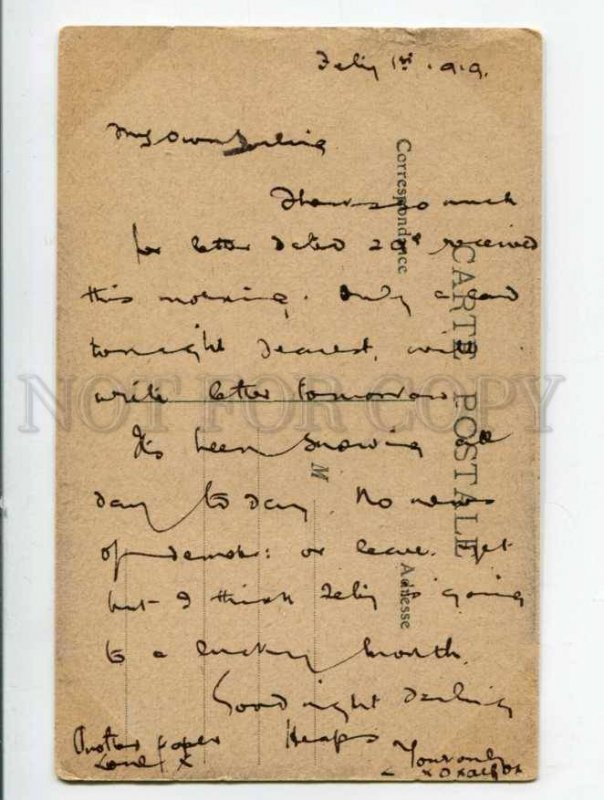 Feby 1st. 19.
My Own Darling
Thanks so much
for letter dated 28th received
this morning. Only a card
tonight dearest, will
write letter tomorrow
It's been snowing all
day to day. No news
of demob: or leave yet
but I think Feby is going
to a lucky month.
Good night darling
Heaps
Another paper
love x
Yours only
Correspondance
CARTE POSTALE
M
Adresse
NOT FOR COPY